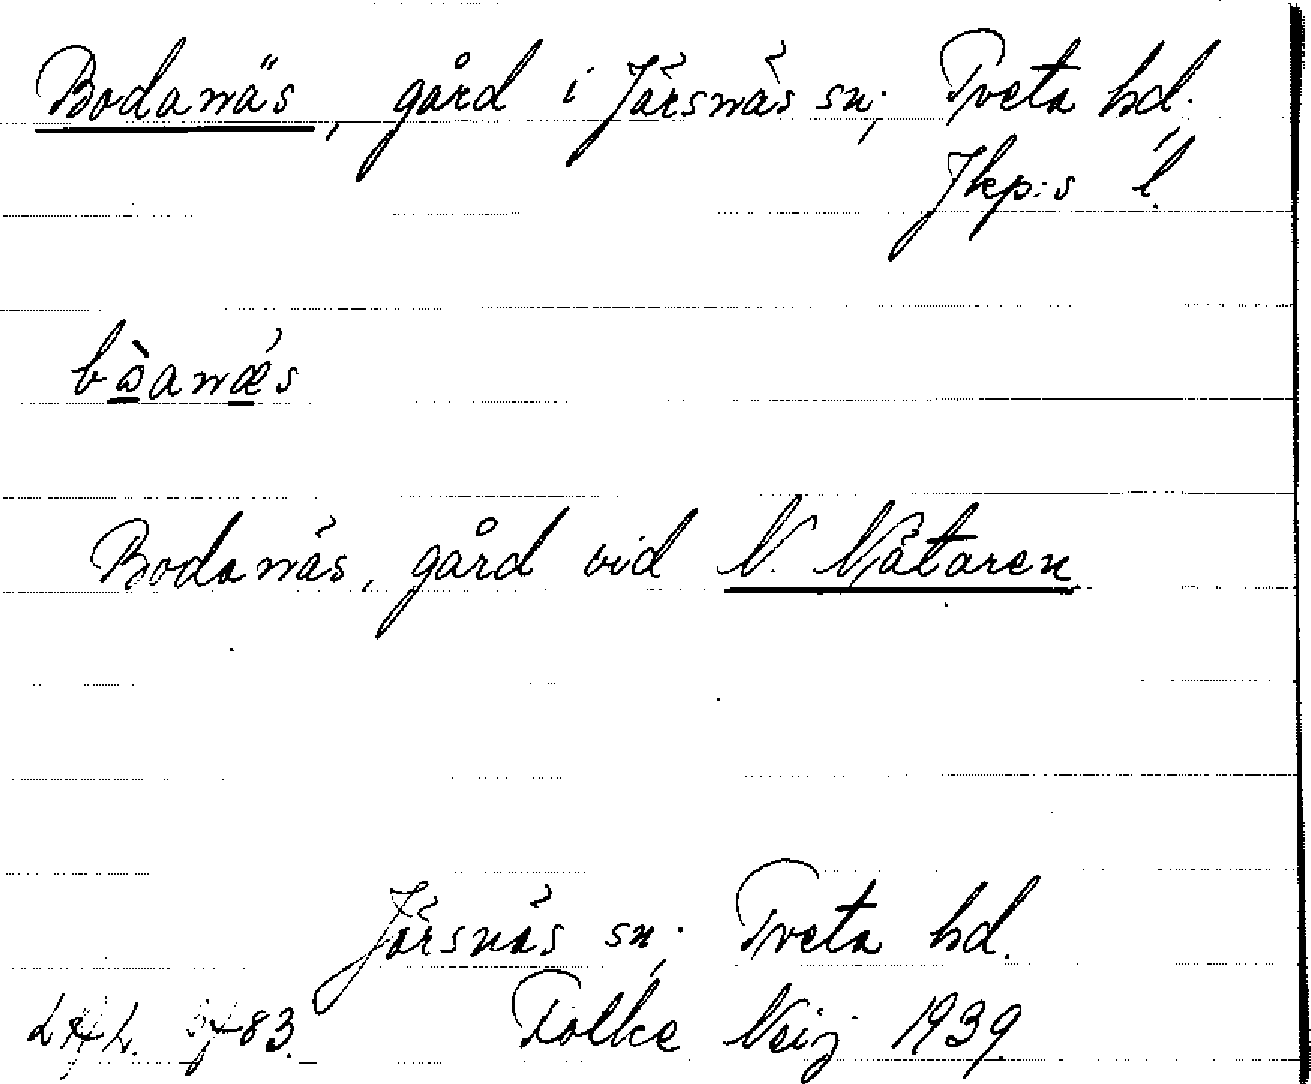 Bodanäs, gård i Järsnäs sn; Tveta hd.
Jkp:s l.
Bodanäs, gård vid N. Nätaren
Järsnäs sn; Tveta hd.
Folke Neij 1939.